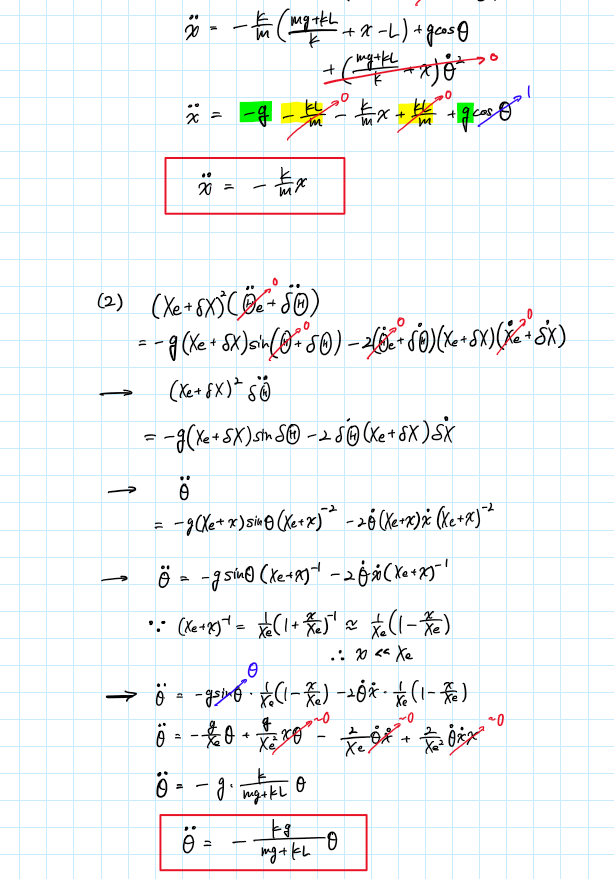 ẍ = - k/m ( (mg+kL)/k + x - L ) + g cosθ
+ ( (mg+kL)/k + x ) θ̇² → 0
ẍ = -g - kL/m → 0 - k/m x + kL/m → 0 + g cosθ → 1
ẍ = - k/m x
(2) (Xe+δX)² (Θ̈e → 0 + δΘ̈)
= -g(Xe+δX) sin(Θ → 0 + δΘ) - 2(Θ̇e → 0 + δΘ̇)(Xe+δX)(Ẋe → 0 + δẊ)
→ (Xe+δX)² δΘ̈
= -g(Xe+δX) sin δΘ - 2 δΘ̇ (Xe+δX) δẊ
→ θ̈
= -g(Xe+x) sinθ (Xe+x)⁻² - 2θ̇ (Xe+x) ẋ (Xe+x)⁻²
→ θ̈ = -g sinθ (Xe+x)⁻¹ - 2θ̇ẋ (Xe+x)⁻¹
∵ (Xe+x)⁻¹ = 1/Xe (1 + x/Xe)⁻¹ ≈ 1/Xe (1 - x/Xe)
∴ x << Xe
→ θ̈ = -g sinθ → θ · 1/Xe (1 - x/Xe) - 2θ̇ẋ · 1/Xe (1 - x/Xe)
θ̈ = - g/Xe θ + g/Xe² xθ → ~0 - 2/Xe θ̇ẋ → ~0 + 2/Xe² θ̇ẋx → ~0
θ̈ = - g · k/(mg+kL) θ
θ̈ = - kg/(mg+kL) θ